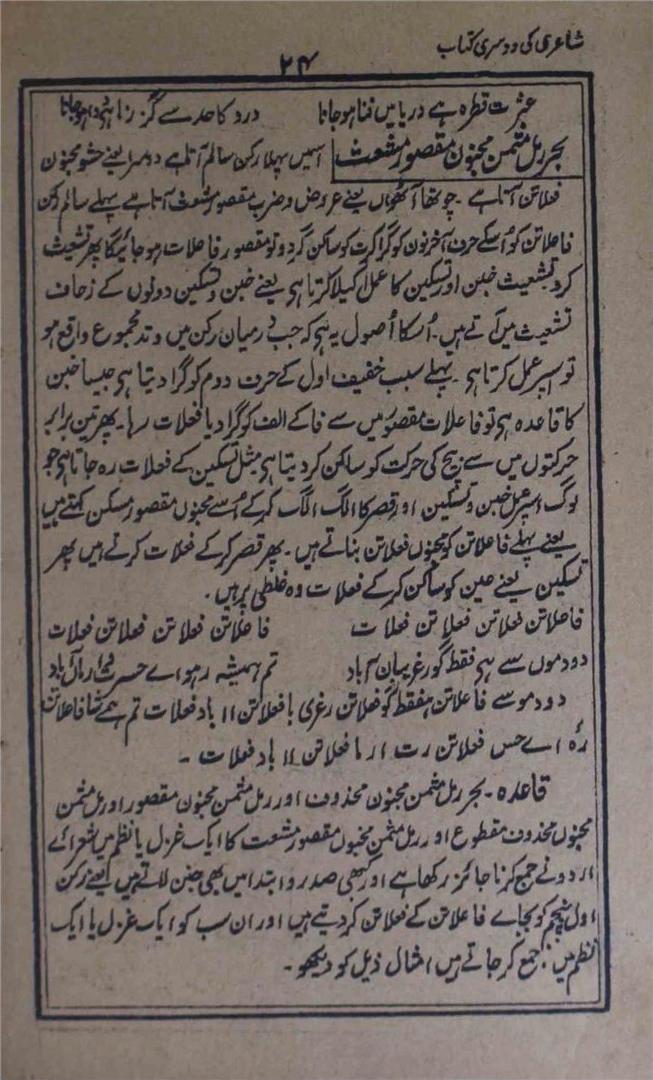 شاعری کی دوسری کتاب
۲۴
عشرت قطرہ ہے دریا میں فنا ہو جانا درد کا حد سے گزرنا ہی دوا ہو جانا
بحر رمل مثمن مخبون مقصور مشعث اسمیں پہلا رکن سالم آتا ہے دوسرا یعنے حشو مخبون
فعلاتن آتا ہے ۔ چوتھا آٹھواں یعنے عروض و ضرب مقصور مشعث آتا ہے پہلے سالم رکن
فاعلاتن کو اُسکے حرف آخر نون کو گرا کر ت کو ساکن کر دو تو مقصور فاعلات ہو جائیگا پھر تشعیث
کرد تشعیث خبن اور تسکین کا عمل اکیلا کرتا ہی یعنے خبن و تسکین دونوں کے زحاف
تشعیث میں آتے ہیں ۔ اُسکا اُصول یہ ہی کہ جب درمیان رکن میں وتد مجموع واقع ہو
تو اسپر عمل کرتا ہی ۔ پہلے سبب خفیف اول کے حرف دوم کو گرا دیتا ہی جیسا خبن
کا قاعدہ ہی تو فاعلات مقصور میں سے فا کے الف کو گرا دیا فعلات رہا ۔ پھر تین برابر
حرکتوں میں سے بیچ کی حرکت کو ساکن کر دیتا ہی مثل تسکین کے فعلات رہ جاتا ہی جو
لوگ اسپر عمل خبن و تسکین اور قصر کا الگ الگ کر کے اُسے مخبون مقصور مسکن کہتے ہیں
یعنے پہلے فاعلاتن کو مخبون فعلاتن بناتے ہیں ۔ پھر قصر کر کے فعلات کرتے ہیں پھر
تسکین یعنے عین کو ساکن کر کے فعلات وہ غلطی پر ہیں ۔
فاعلاتن فعلاتن فعلاتن فعلات فاعلاتن فعلاتن فعلاتن فعلات
دو دموں سے ہی فقط گور غریباں آباد تم ہمیشہ رہو اے حسرت و ارماں آباد
دو دمو سے فاعلاتن ہفقط گو فعلاتن رغری با فعلاتن اا باد فعلات تم ہمے شا فاعلاتن
رہ اے حس فعلاتن رت ار ما فعلاتن اا باد فعلات ۔
قاعدہ ۔ بحر رمل مثمن مخبون محذوف اور رمل مثمن مخبون مقصور اور رمل مثمن
مخبوں محذوف مقطوع اور رمل مثمن مخبول مقصور مشعت کا ایک غزل یا نظم میں شعرائے
اردو نے جمع کرنا جائز رکھا ہے اور کبھی صدر و ابتدا میں بھی خبن لاتے ہیں یعنے رکن
اول پنجم کو بجاے فاعلاتن کے فعلاتن کر دیتے ہیں اور ان سب کو ایک غزل یا ایک
نظم میں جمع کر جاتے ہیں امثال ذیل کو دیکھو ۔